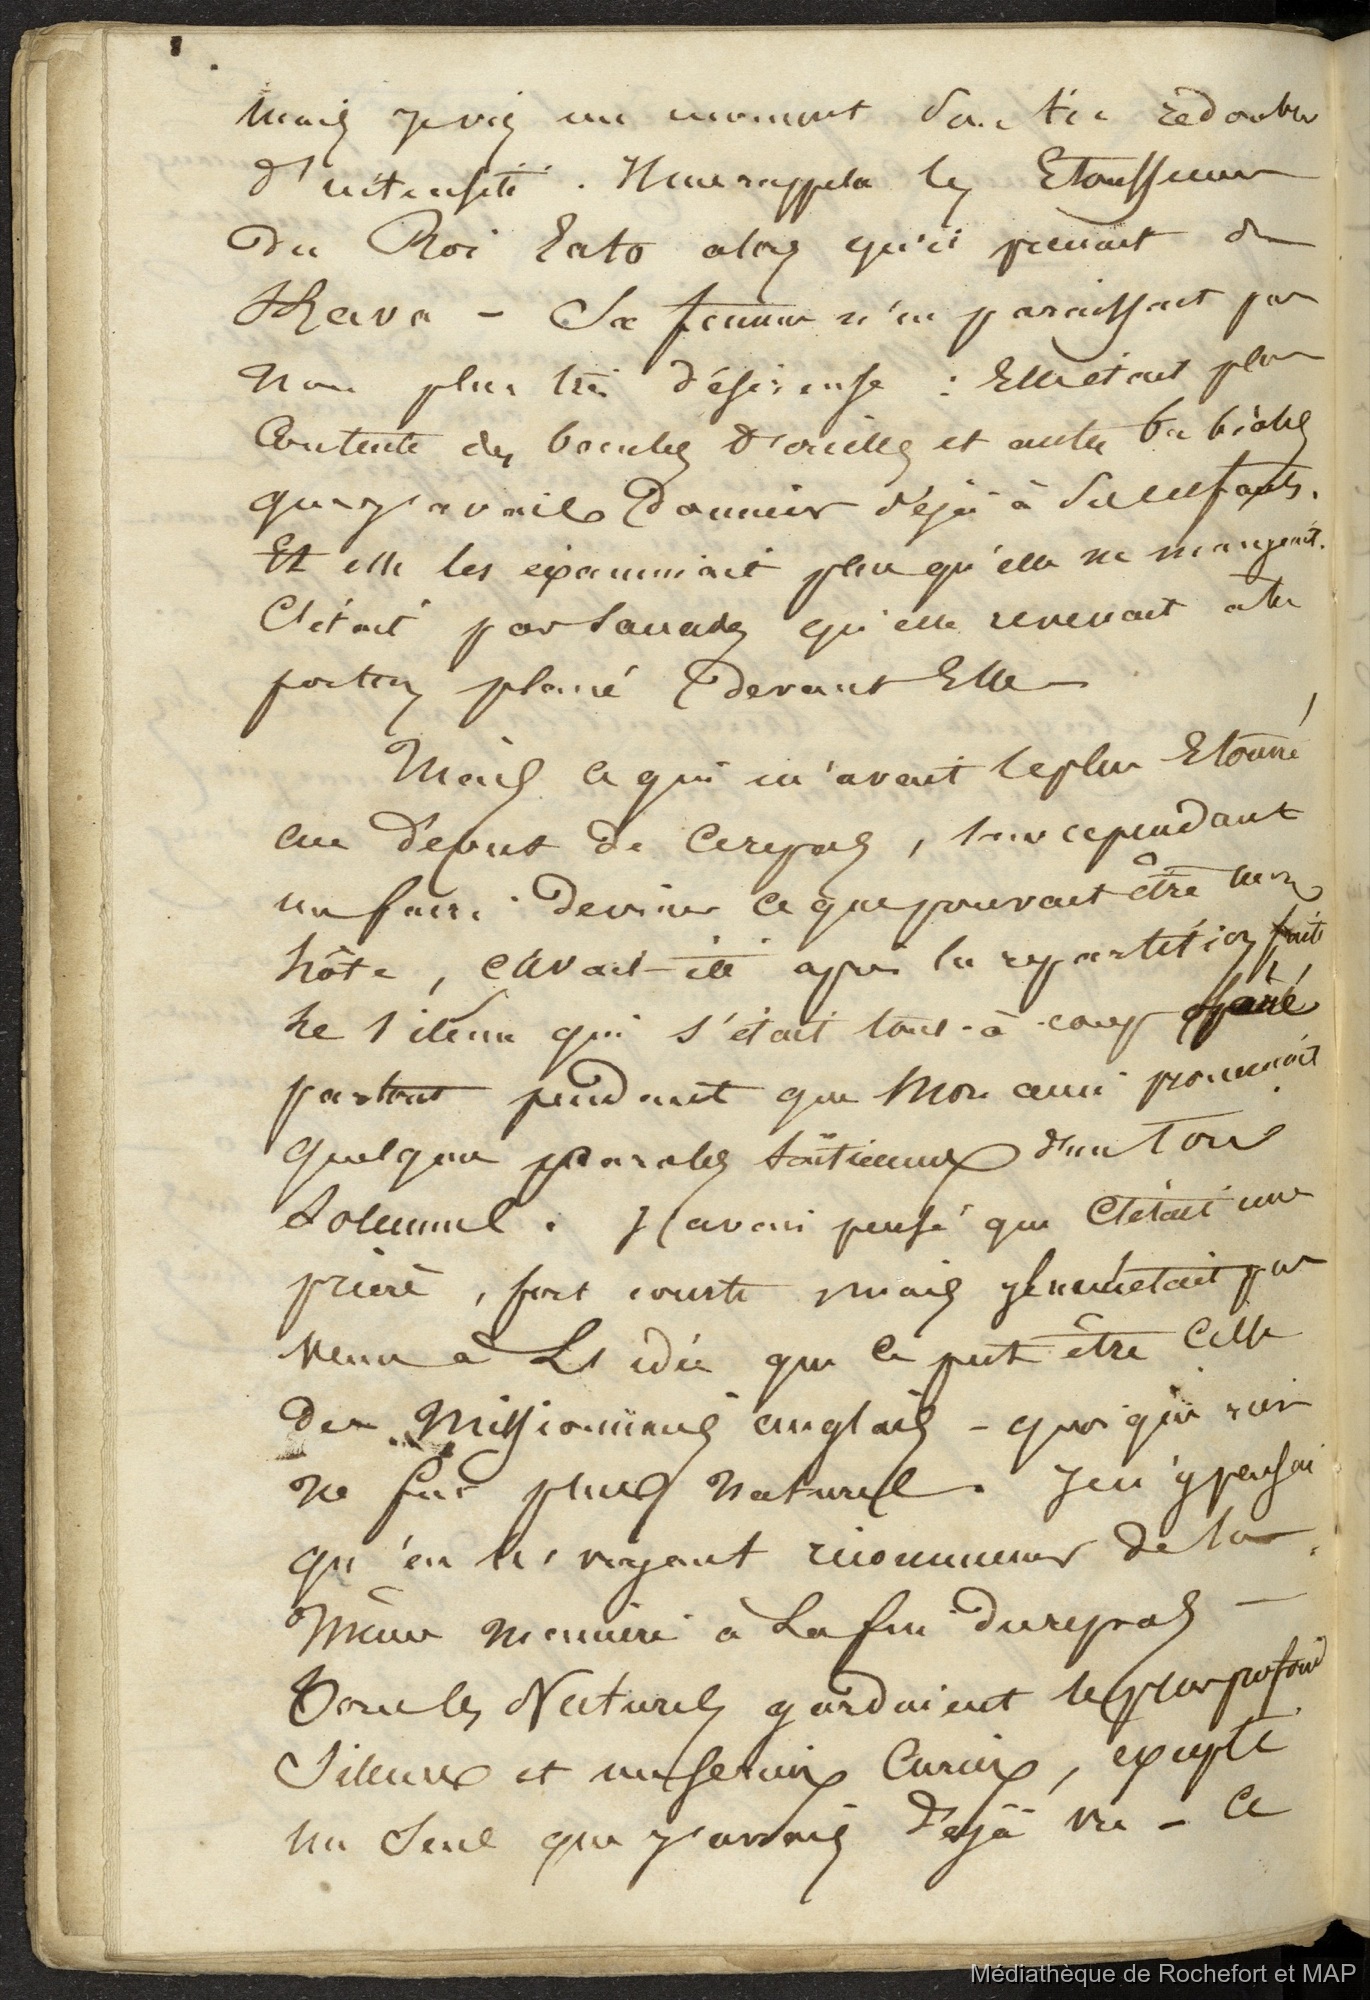 mais je vis un moment son tic redoubler
d'intensité. Il me rappela les Etouffemens
du Roi Tato alors qu'il prenait du
Kava - Sa femme n'en paraissait pas
non plus très désireuse : Elle était plus
Contente des boucles d'oreilles et autres babioles
que j'avais données déjà à ses enfants.
Et elle les examinait plus qu'elle ne mangeait.
C'était par qu'elle revenait à la
portion placé devant Elle -
Mais ce qui m'avait le plus Etonné
au début de ce repas, sans cependant
me faire deviner ce que pouvait être mon
hôte, c'avait été après la répartition faite
le silence qui s'était tout-à-coup opéré
partout pendant que mon ami prononçait
quelques paroles taïtiennes d'un ton
solennel. J'avais pensé que c'était une
prière, fort courte mais il ne m'était pas
venu à l'idée que ce put être celle
des Missionnaires anglais - quoique rien
ne fut plus naturel. Je n'y pensai
qu'en les voyant recommencer de la
même manière à la fin du repas -
Tous les Naturels gardaient le plus profond
silence et un sérieux curieux, excepté
un seul que j'avais déjà vu - Ce
Médiathèque de Rochefort et MAP